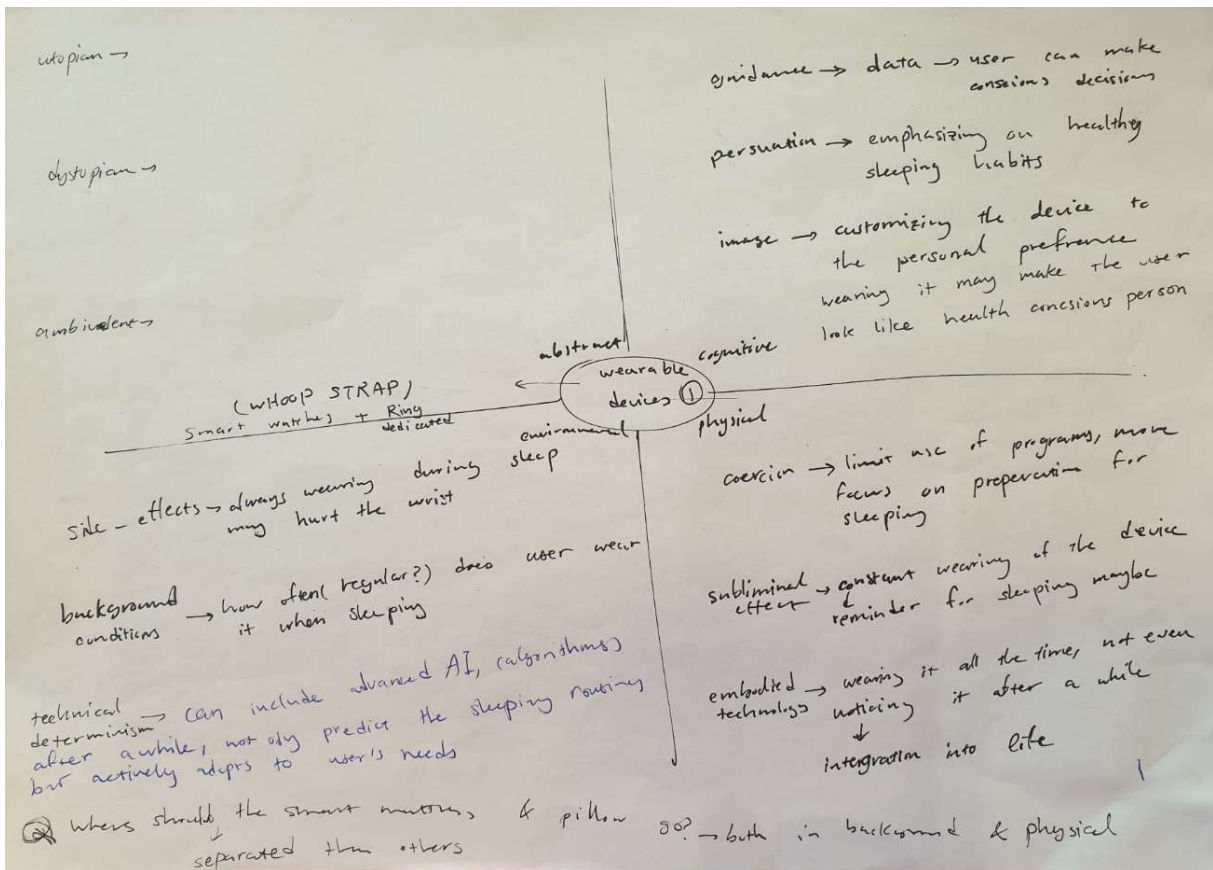 utopian →
dystopian →
ambivalent →
abstract
(WHOOP STRAP)
Smart watches + Ring
dedicated
guidance → data → user can make
conscions decisions
persuation → emphasizing on healthy
sleeping habits
image → customizing the device to
the personal prefrence
wearing it may make the user
look like health concsions person
cognitive
wearable
devices ①
environmental
side-effects → always wearing during sleep
may hurt the wrist
background
conditions → how often (regular?) does user wear
it when sleeping
technical
determinism → can include advanced AI, (algorithms)
after awhile, not only predict the sleeping routing
but actively adapts to user's needs
physical
coercion → limit use of programs, more
focus on preperation for
sleeping
subliminal
effect → constant wearing of the device
↓
reminder for sleeping maybe
embodied
technology → wearing it all the time, not even
noticing it after a while
↓
intergration into life
Q Where should the smart mattress & pillow go? → both in background & physical
↓
separated than others
1